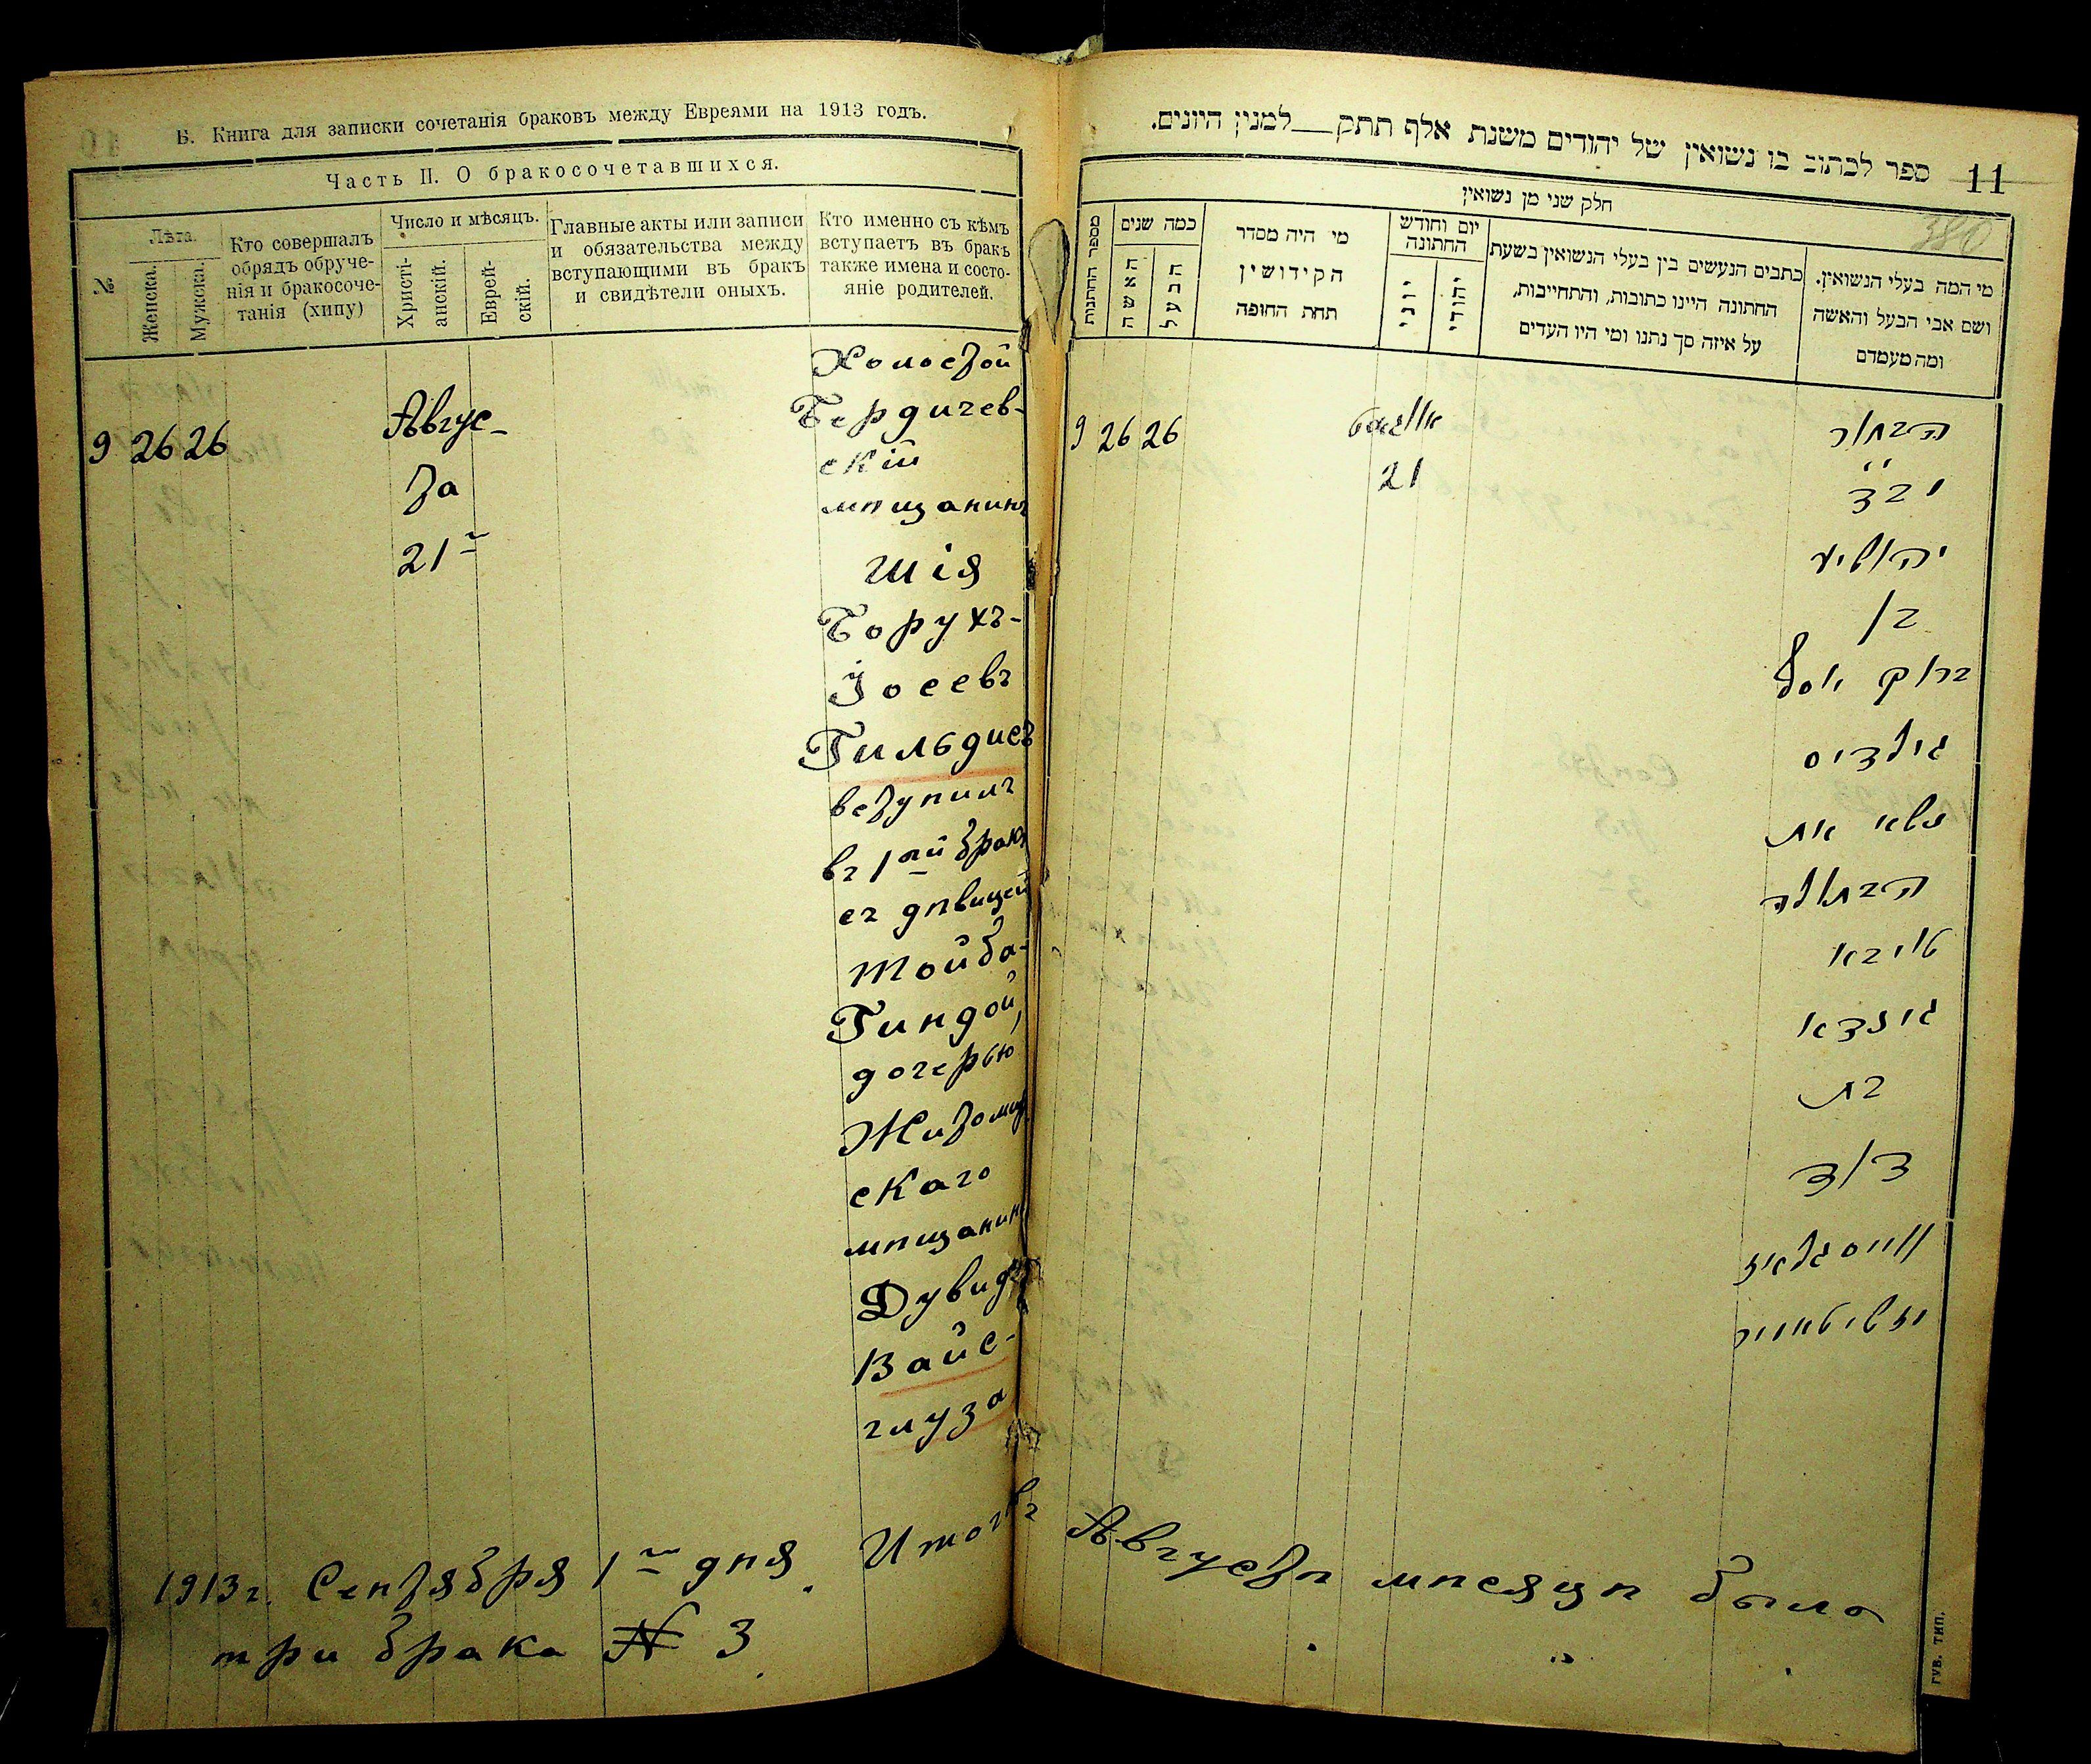 Б. Книга для записки сочетанія браковъ между Евреями на 1913 годъ.
Часть II. О бракосочетавшихся.
№
Лѣта.
Женска.
Мужска.
Кто совершалъ
обрядъ обруче-
нія и бракосоче-
танія (хипу)
Число и мѣсяцъ.
Христі-
анскій.
Еврей-
скій.
Главные акты или записи
и обязательства между
вступающими въ бракъ
и свидѣтели оныхъ.
Кто именно съ кѣмъ
вступаетъ въ бракъ
также имена и состо-
яніе родителей.
9 26 26
Авгус-
та
21го
Холостой
Бердичев-
скій
мѣщанинъ
Шія
Борухъ-
Іосевъ
Гильдисъ
вступилъ
въ 1ый бракъ
съ дѣвицей
Тойба-
Гиндой,
дочерью
Житомир
скаго
мѣщанина
Дувидъ
Вайс-
глуза
11
ספר לכתוב בו נשואין של יהודים משנת אלף תתק__למנין היונים.
380
חלק שני מן נשואין
מי המה בעלי הנשואין.
ושם אבי הבעל והאשה
ומה מעמדם
כתבים הנעשים בין בעלי הנשואין בשעת
החתונה היינו כתובות, והתחייבות,
על איזה סך נתנו ומי היו העדים
יום וחודש
החתונה
יהודי
יוני
מי היה מסדר
הקידושין
תחת החופה
כמה שנים
הבעל
האשה
מספר החתנות
9 26 26
אווגוסט
21
הבחור
יהושיע
בן
ברוך יוסף
גילדיס
נשא את
הבתולה
טויבא
גינדא
בת
דוד
ווייסגלוז
1913г. Сентября 1го дня. Итогъ въ Августѣ мѣсяцѣ было
три брака № 3.
ГУБ. ТИП.